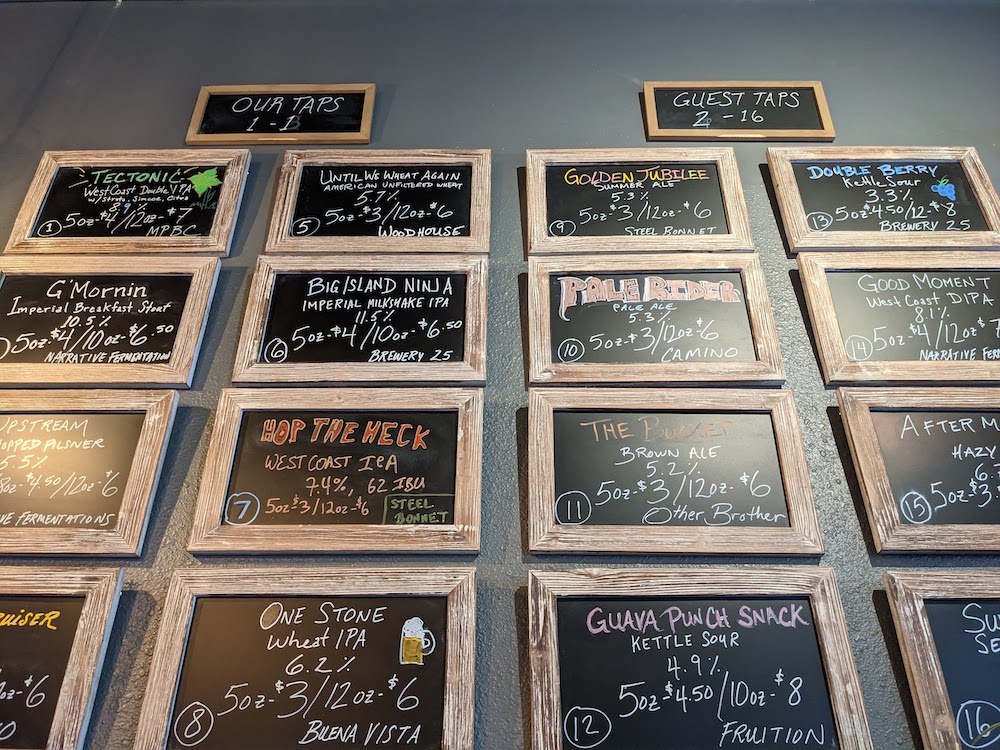 OUR TAPS
1 - 1
GUEST TAPS
2 - 16
TECTONIC
West Coast Double IPA
w/ Strata, Simcoe, Citra
8.8%
1 5oz-$4/12oz-$7
MPBC
G'Mornin
Imperial Breakfast Stout
10.5%
5oz-$4/10oz-$6.50
NARRATIVE FERMENTATION
UPSTREAM
HOPPED PILSNER
5.5%
8oz-$4.50/12oz-$6
FERMENTATIONS
$6
UNTIL WE WHEAT AGAIN
AMERICAN UNFILTERED WHEAT
5.7%
5 5oz-$3/12oz-$6
WOODHOUSE
BIG ISLAND NINJA
IMPERIAL MILKSHAKE IPA
11.5%
6 5oz-$4/10oz-$6.50
BREWERY 25
HOP THE HECK
WEST COAST IPA
7.4%, 62 IBU
7 5oz-$3/12oz-$6
STEEL
BONNET
ONE STONE
Wheat IPA
6.2%
8 5oz-$3/12oz-$6
BUENA VISTA
GOLDEN JUBILEE
SUMMER ALE
5.3%
9 5oz-$3/12oz-$6
STEEL BONNET
PALE RIDER
PALE ALE
5.3%
10 5oz-$3/12oz-$6
CAMINO
THE BUCKET
BROWN ALE
5.2%
11 5oz-$3/12oz-$6
Other Brother
GUAVA PUNCH SNACK
KETTLE SOUR
4.9%
12 5oz-$4.50/10oz-$8
FRUITION
DOUBLE BERRY
Kettle Sour
3.3%
13 5oz-$4.50/12-$8
BREWERY 25
GOOD MOMENT
West Coast DIPA
8.1%
14 5oz-$4/12oz-$7
NARRATIVE FERM
AFTER M
HAZY
15 5oz-$3.
SU
SE
16